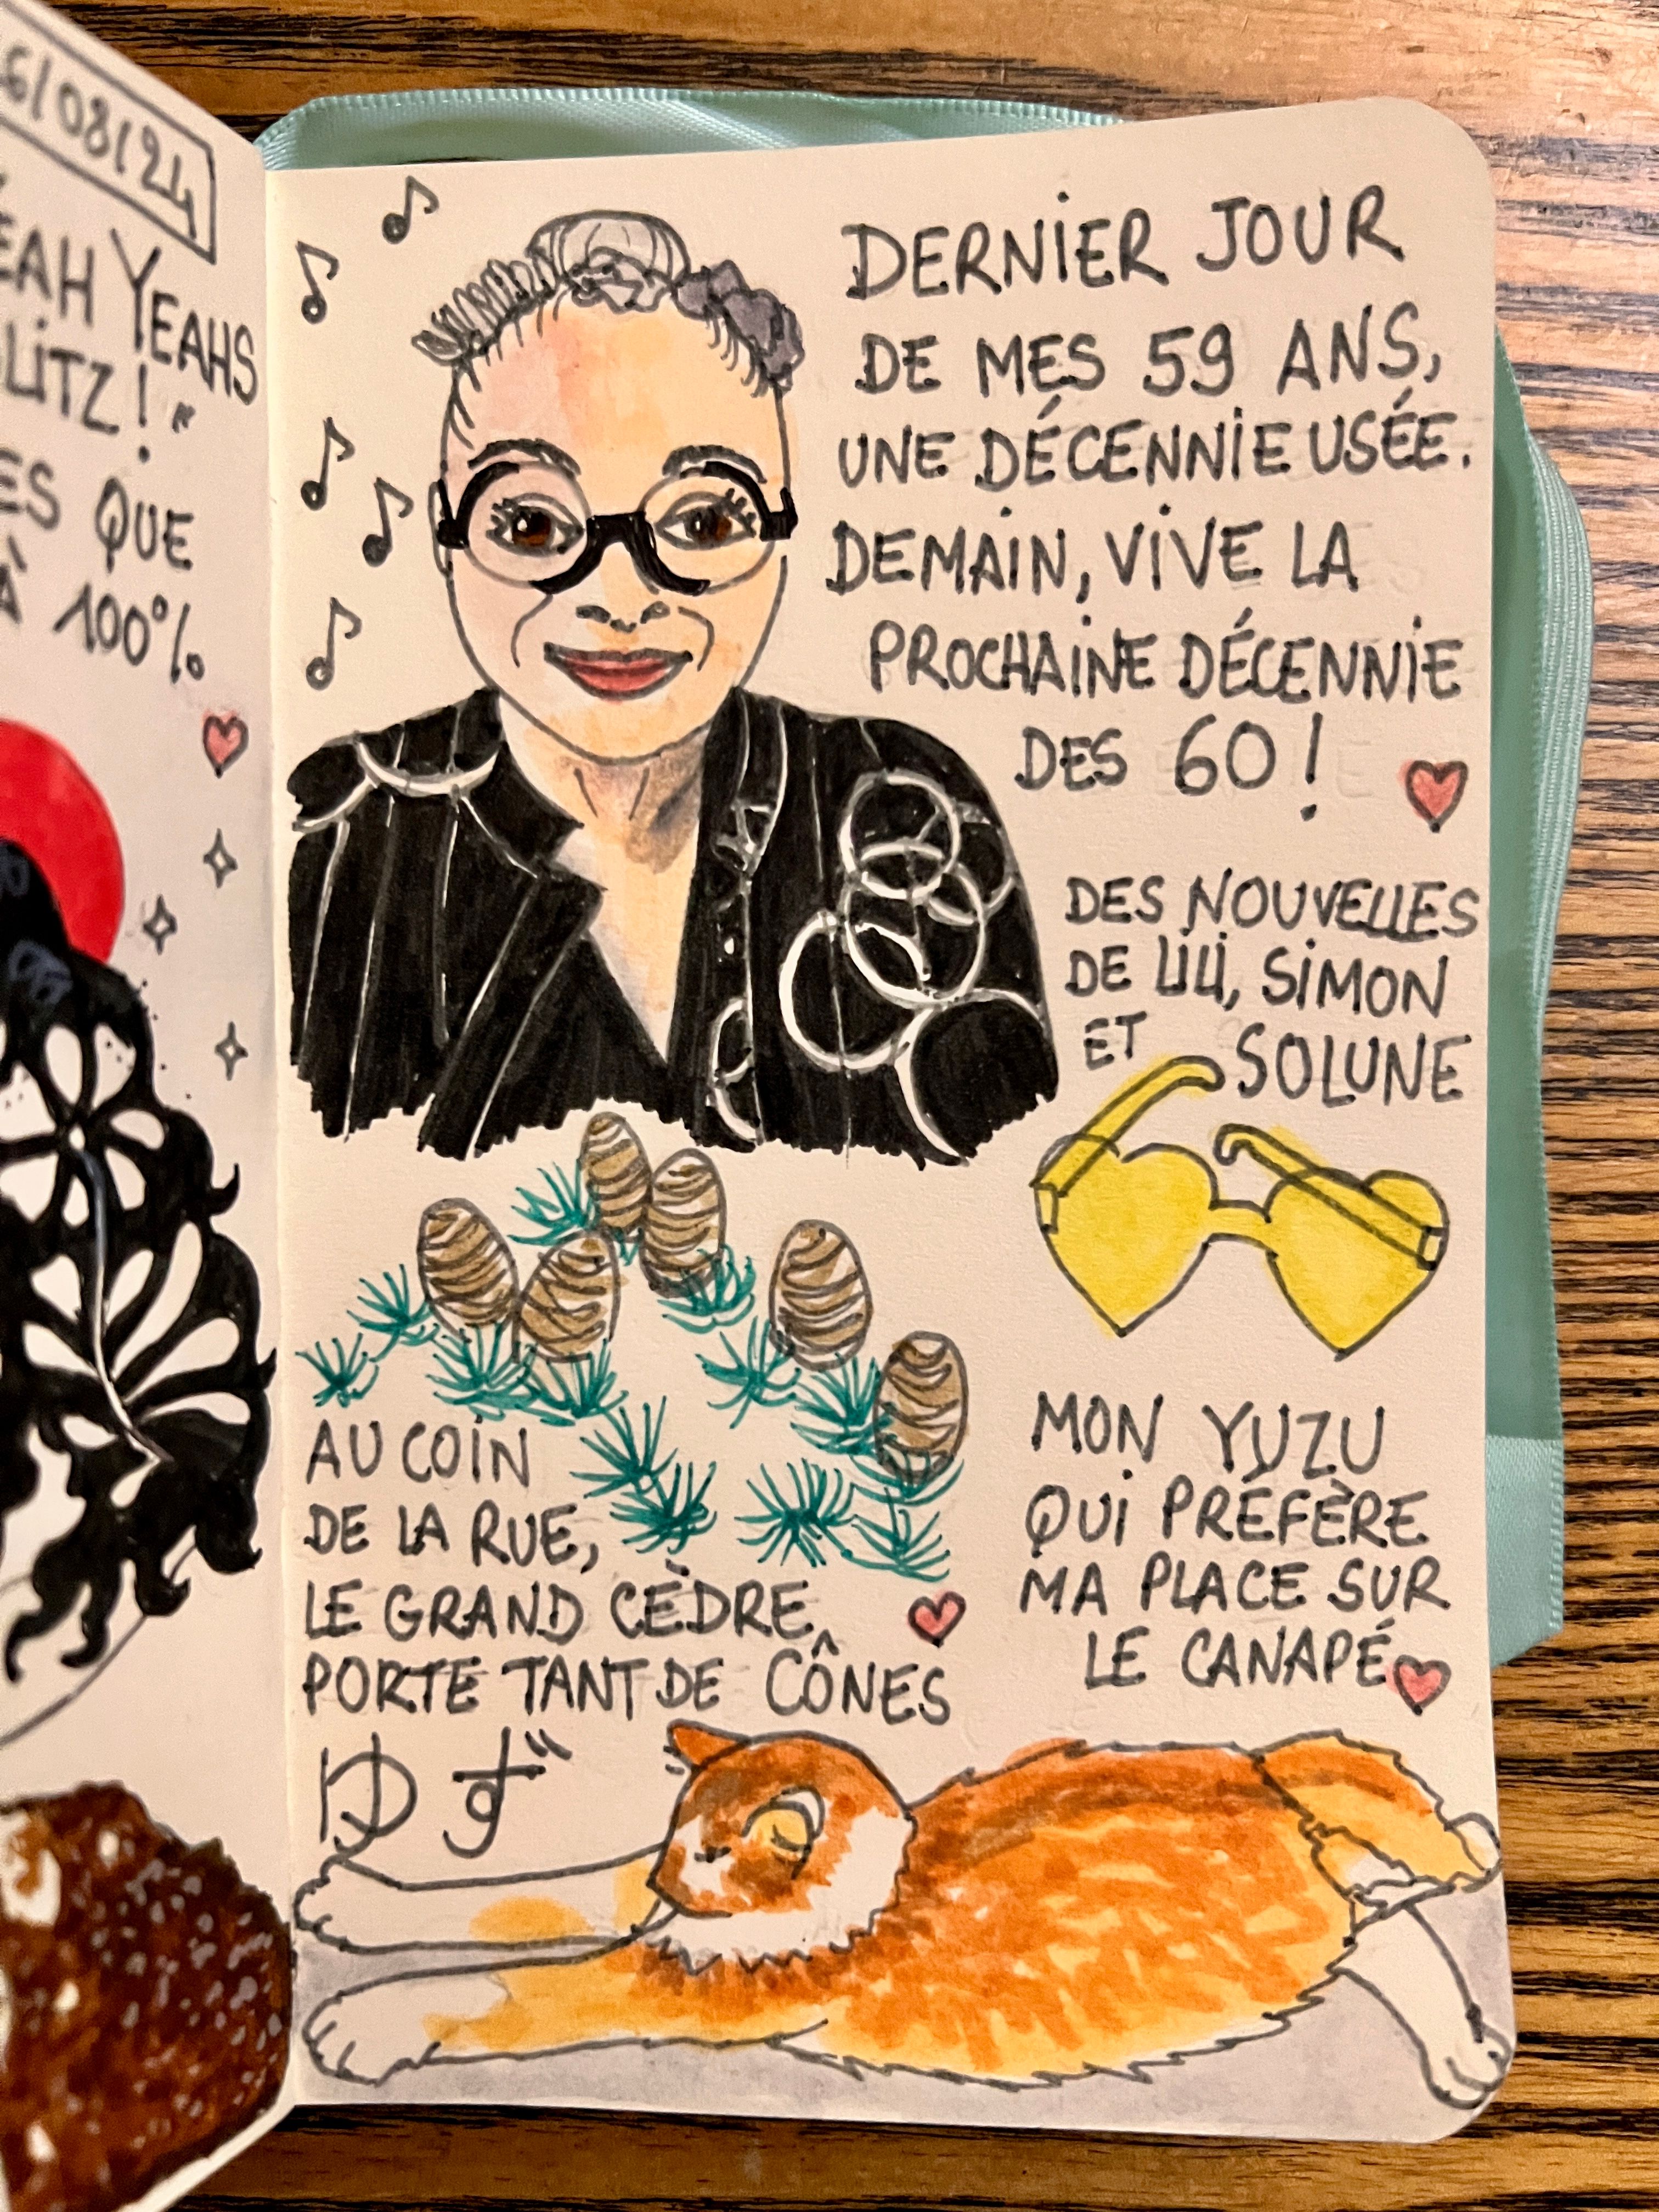 6/08/24
EAH YEAHS
LITZ ! "
ES QUE
À 100%
DERNIER JOUR
DE MES 59 ANS,
UNE DÉCENNIE USÉE.
DEMAIN, VIVE LA
PROCHAINE DÉCENNIE
DES 60 !
DES NOUVELLES
DE LILI, SIMON
ET SOLUNE
AU COIN
DE LA RUE,
LE GRAND CÈDRE
PORTE TANT DE CÔNES
MON YUZU
QUI PRÉFÈRE
MA PLACE SUR
LE CANAPÉ
ゆず